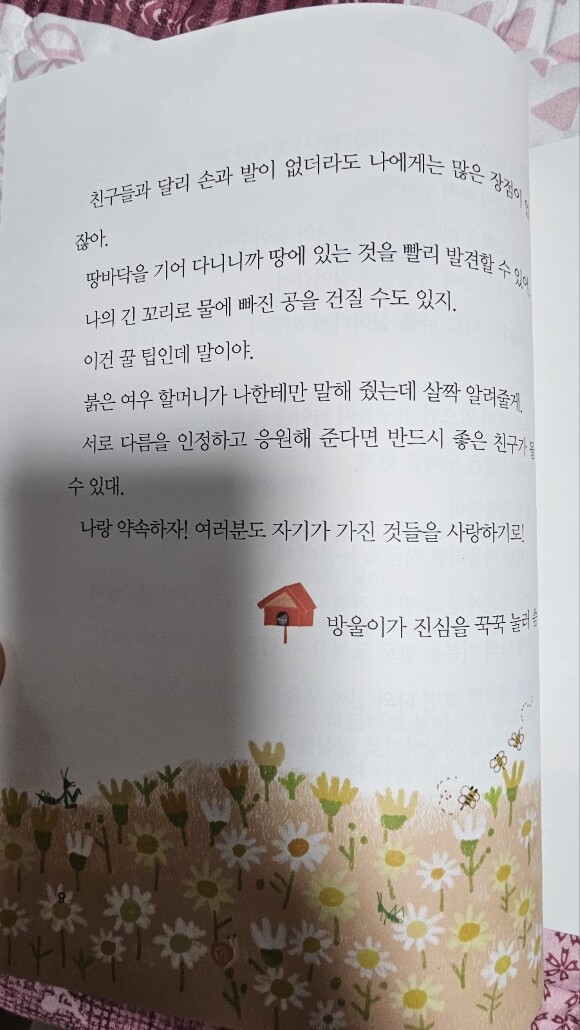 친구들과 달리 손과 발이 없더라도 나에게는 많은 장점이
잖아.
땅바닥을 기어 다니니까 땅에 있는 것을 빨리 발견할 수 있어.
나의 긴 꼬리로 물에 빠진 공을 건질 수도 있지.
이건 꿀 팁인데 말이야.
붉은 여우 할머니가 나한테만 말해 줬는데 살짝 알려줄게.
서로 다름을 인정하고 응원해 준다면 반드시 좋은 친구가
수 있대.
나랑 약속하자! 여러분도 자기가 가진 것들을 사랑하기로!
방울이가 진심을 꾹꾹 눌러
8